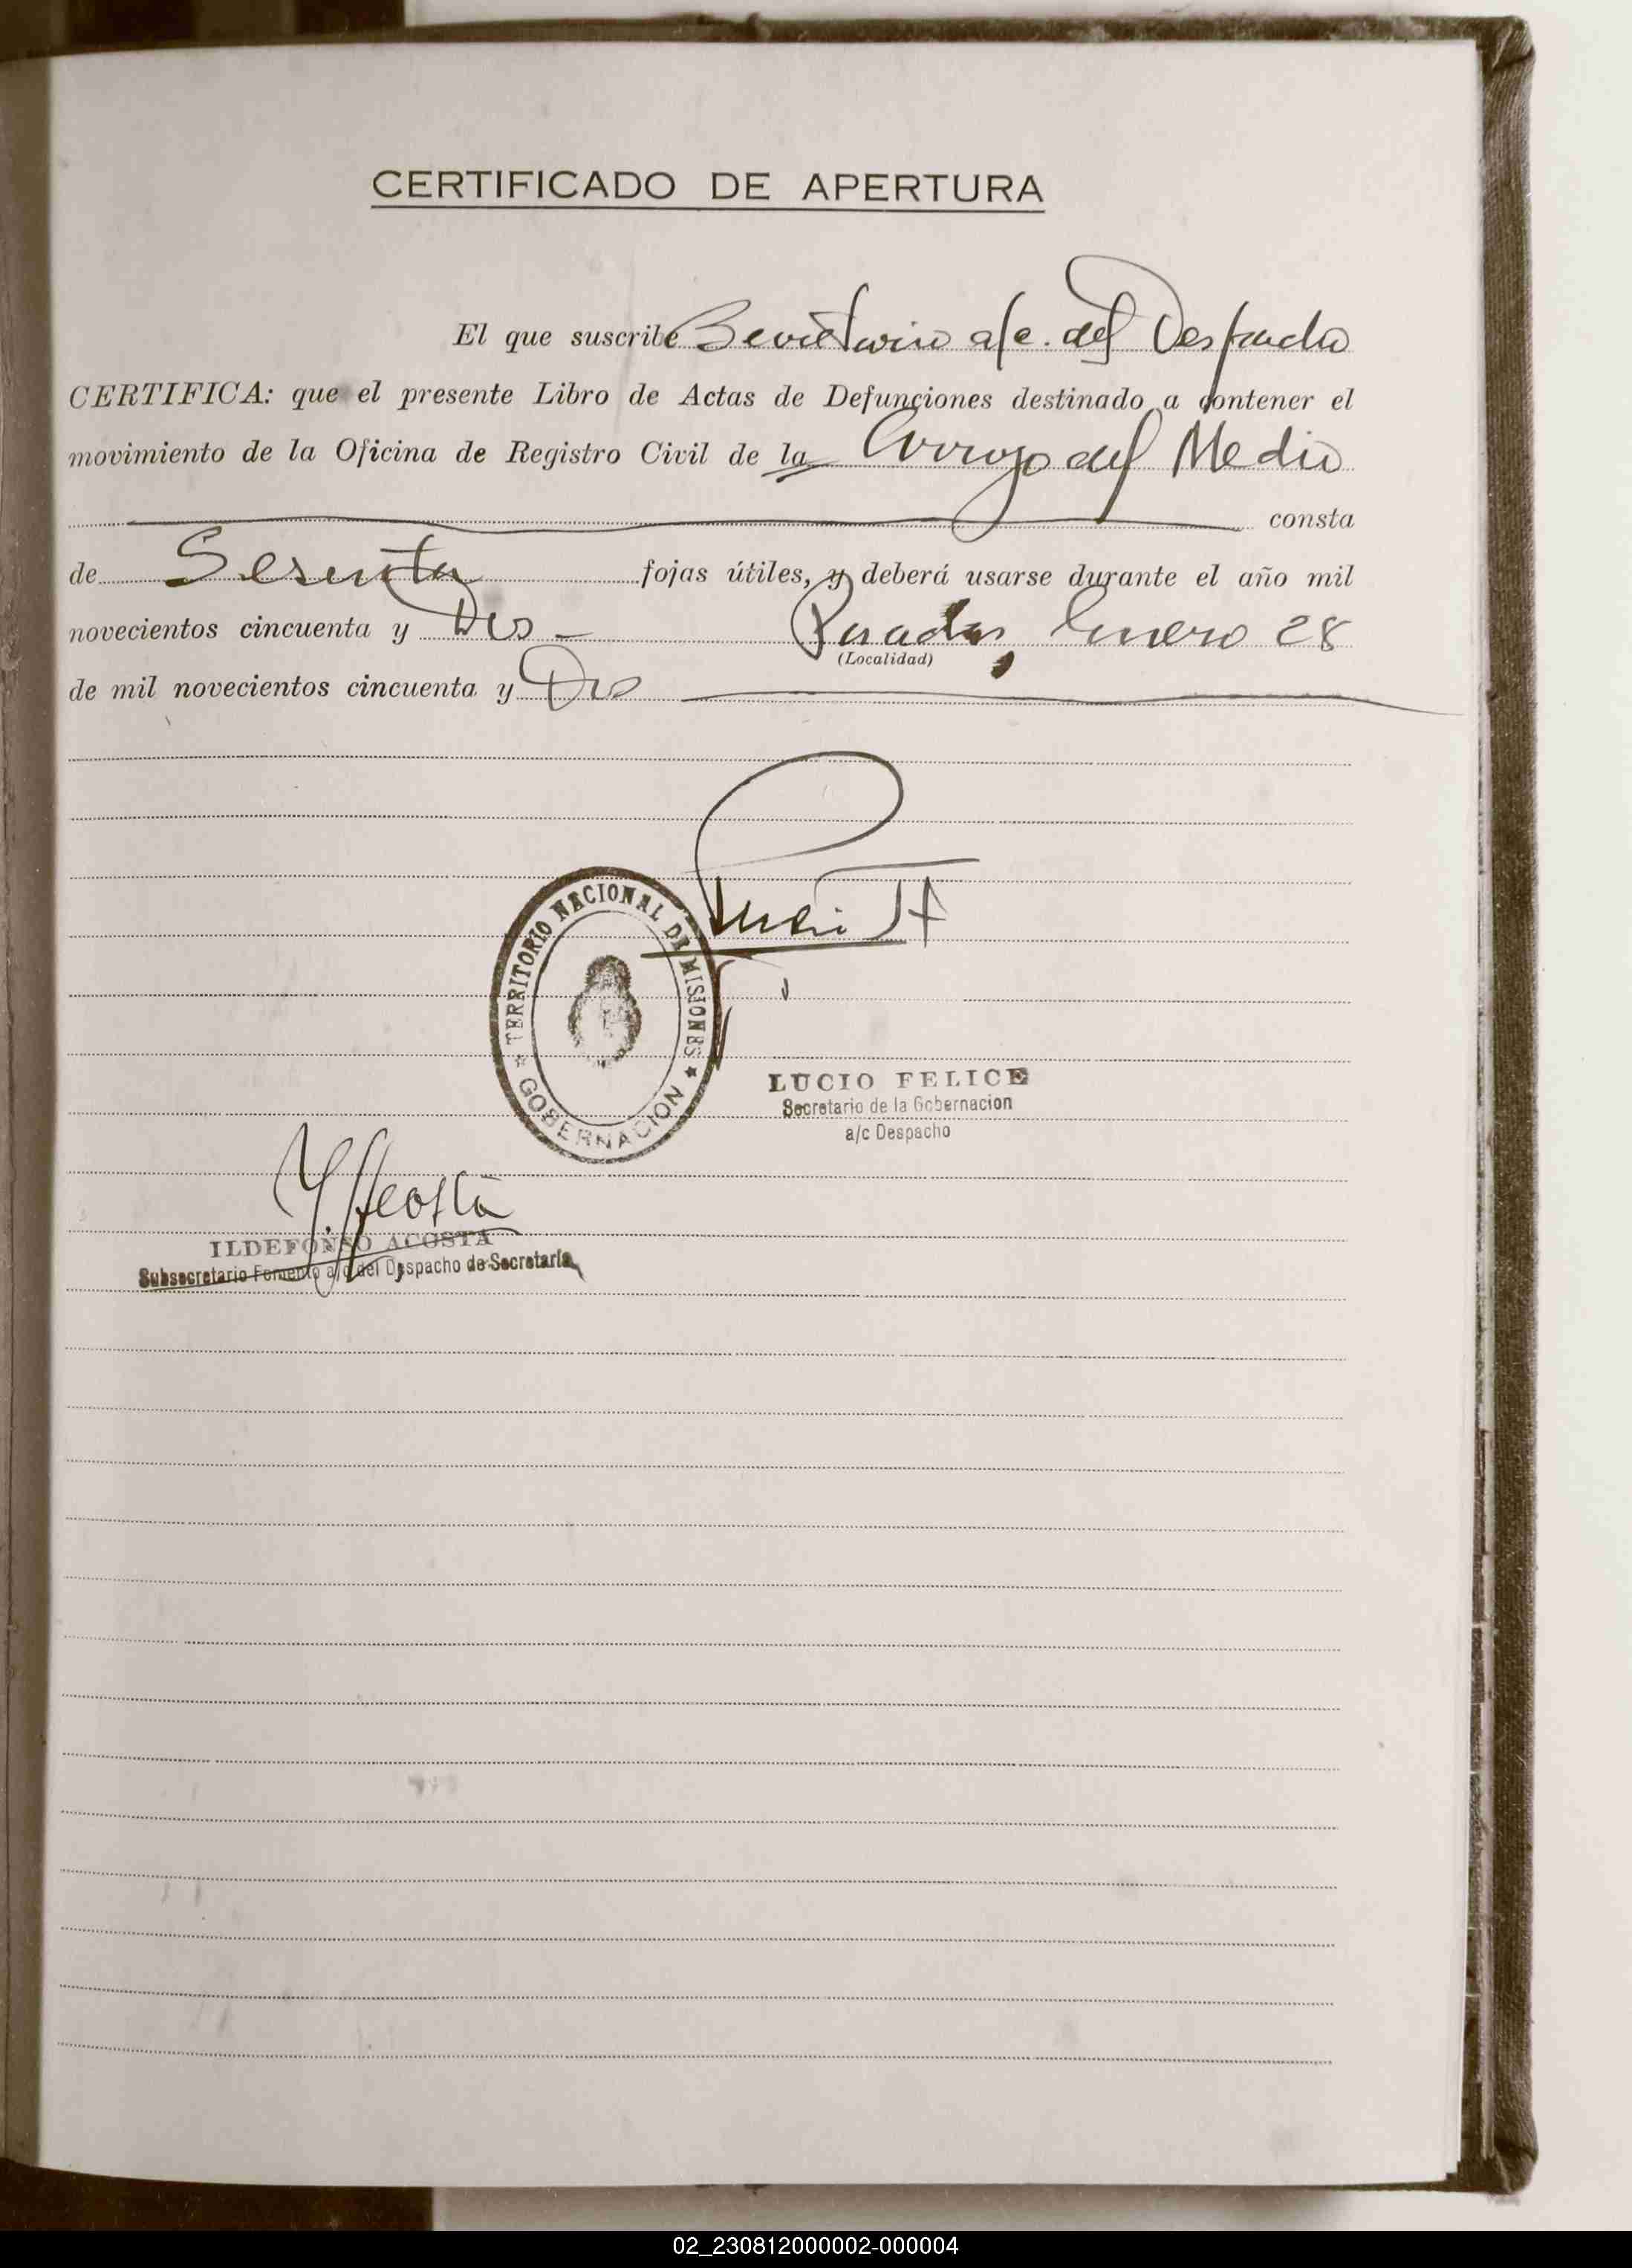 CERTIFICADO DE APERTURA
El que suscribe Secretario a/c. del Despacho
CERTIFICA: que el presente Libro de Actas de Defunciones destinado a contener el
movimiento de la Oficina de Registro Civil de la Arroyo del Medio
consta
de Sesenta fojas útiles, y deberá usarse durante el año mil
novecientos cincuenta y Dos - Posadas, Enero 28
(Localidad)
de mil novecientos cincuenta y Dos
TERRITORIO NACIONAL DE MISIONES
GOBERNACION
LUCIO FELICE
Secretario de la Gobernacion
a/c Despacho
Y. Acosta
ILDEFONSO ACOSTA
Subsecretario Fomento a/c del Despacho de Secretaría
02_230812000002-000004